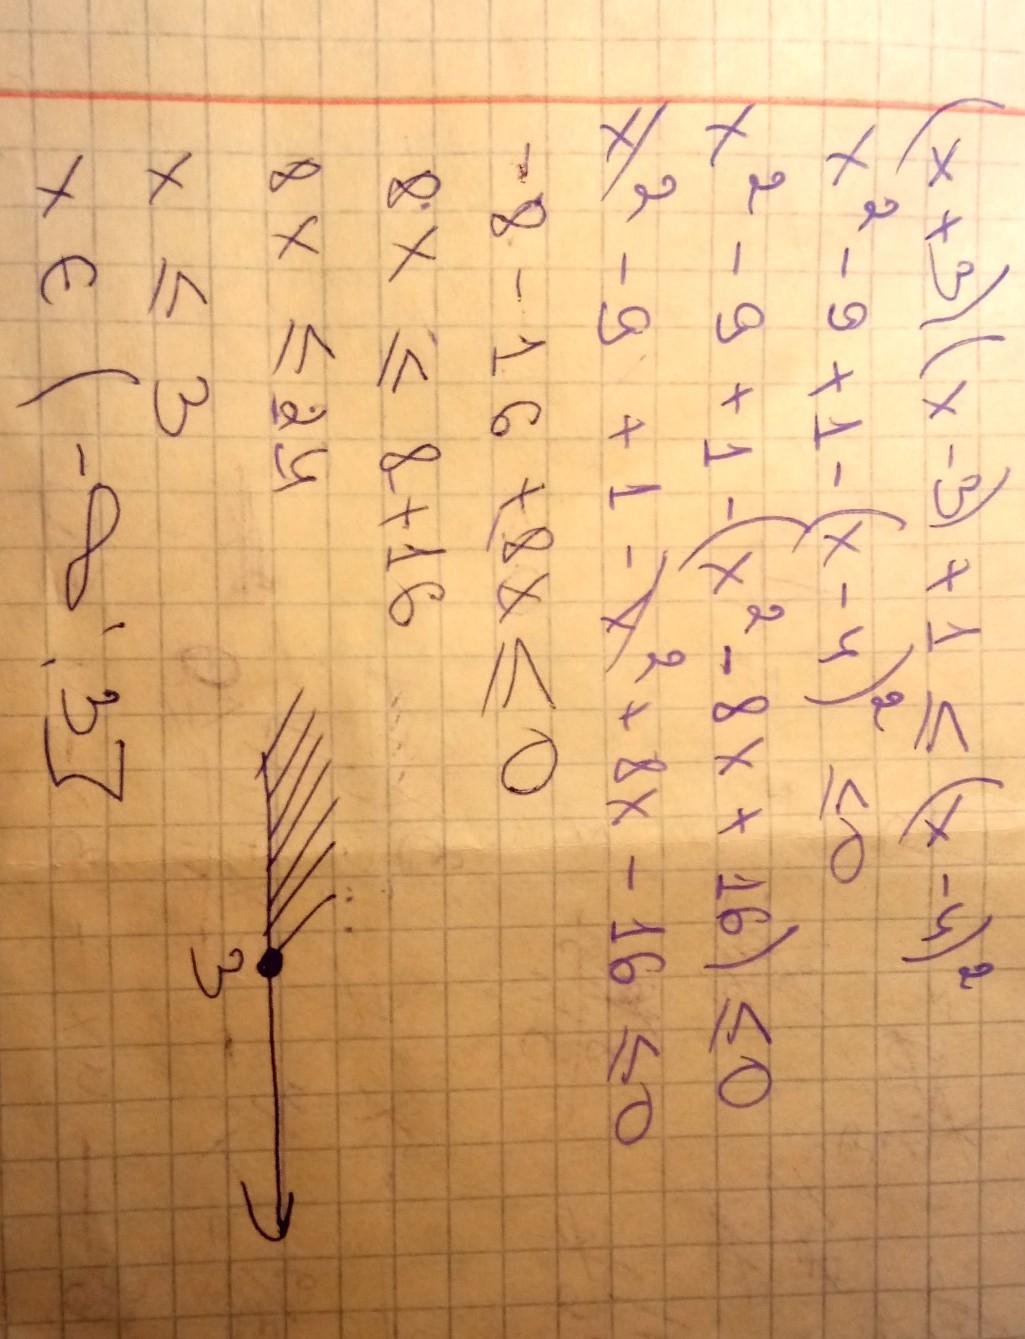 (x+3)(x-3)+1 ≤ (x-4)²
x²-9+1-(x-4)² ≤0
x²-9+1-(x²-8x+16) ≤0
x²-9+1-x²+8x-16 ≤0
-8-16+8x ≤0
8x ≤ 8+16
8x ≤ 24
x ≤ 3
3
x ∈ (-∞; 3]